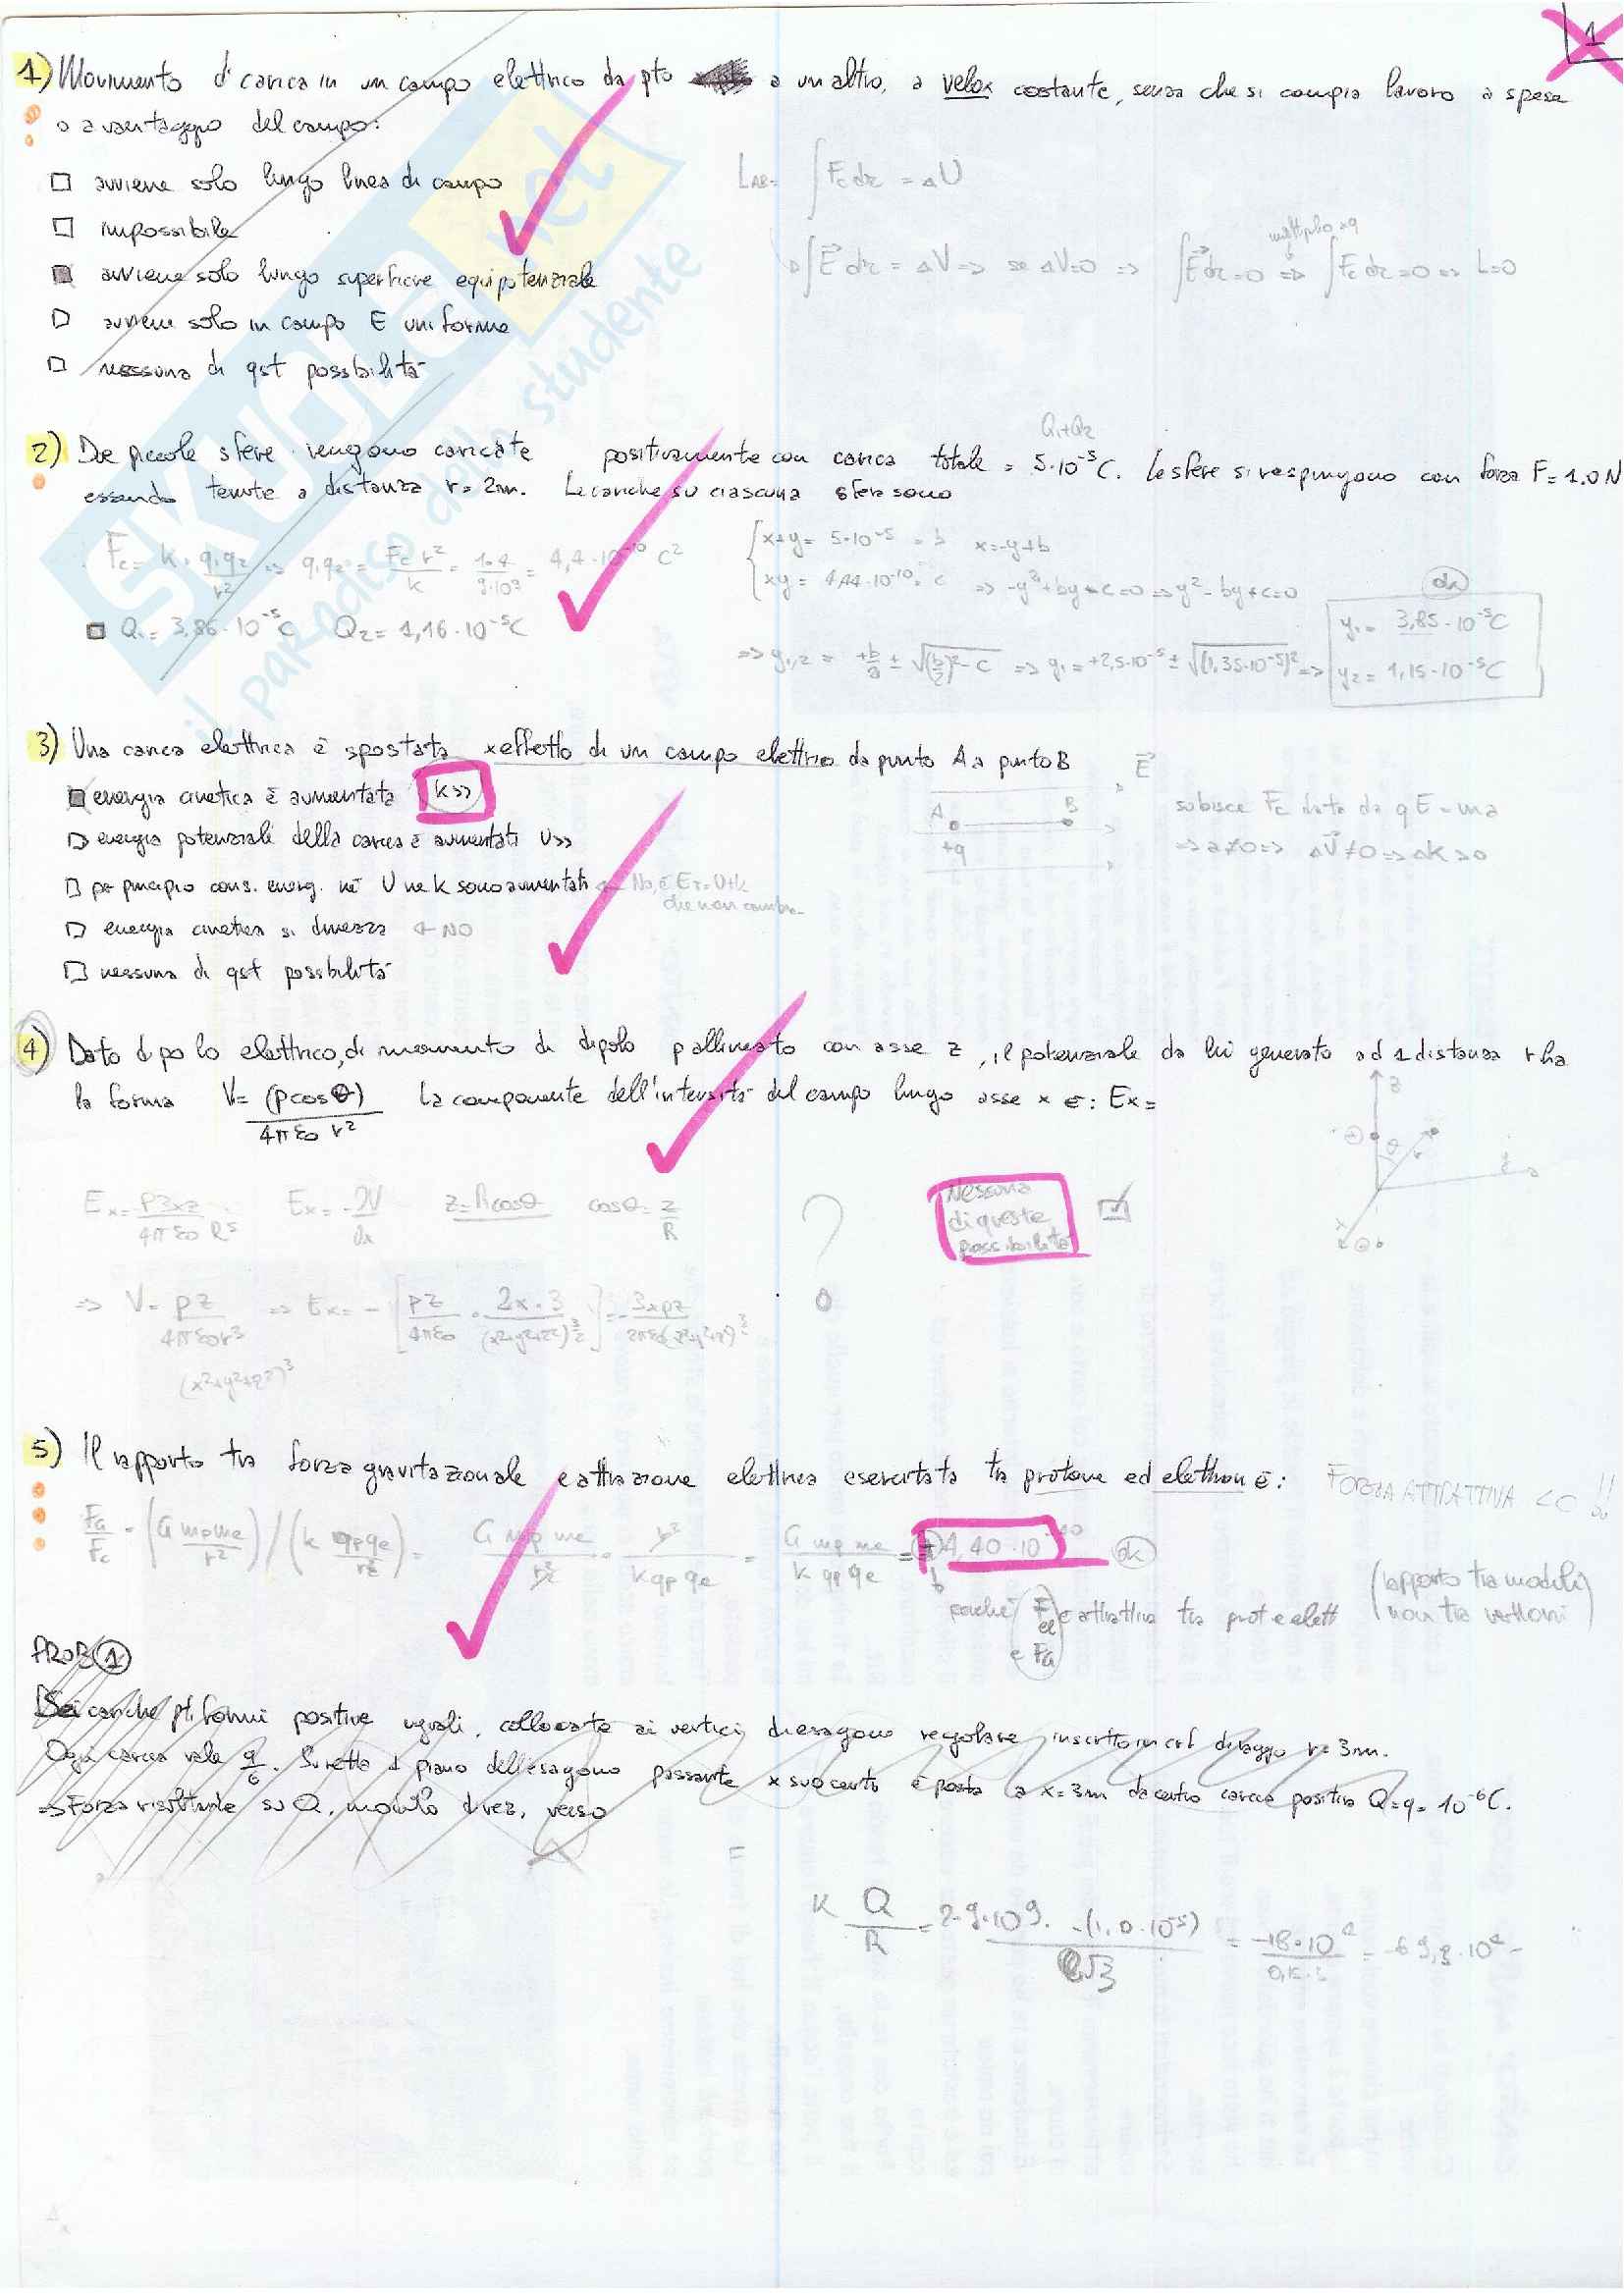 1
1) Movimento di carica in un campo elettrico da pto a un altro, a veloc costante, senza che si compia lavoro a spese
o a vantaggio del campo:
□ avviene solo lungo linea di campo
□ impossibile
■ avviene solo lungo superficie equipotenziale
□ avviene solo in campo E uniforme
□ nessuna di qst possibilità
L_AB = ∫ Fc dr = ΔU
∫ E⃗ dr = ΔV => se ΔV=0 => ∫ E⃗ dr = 0 => ∫ Fc dr = 0 => L=0
multiplo x q
2) Due piccole sfere vengono caricate positivamente con carica totale = 5·10⁻⁵C. Le sfere si respingono con forza F= 1.0 N
Q1+Q2
essendo tenute a distanza r= 2m. Le cariche su ciascuna sfera sono
Fc = k · q1q2/r² => q1q2 = Fc r²/k = 1·4/9·10⁹ = 4,4·10⁻¹⁰ C²
■ Q1= 3,86·10⁻⁵C Q2= 1,16·10⁻⁵C
x+y= 5·10⁻⁵ = b x=-y+b
xy= 4,44·10⁻¹⁰= c => -y²+by-c=0 => y²-by+c=0
=> y1,2 = +b/2 ± √(b/2)²-c => y1 = +2,5·10⁻⁵ ± √(1,35·10⁻⁵)² =>
ok
y1= 3,85·10⁻⁵C
y2= 1,15·10⁻⁵C
3) Una carica elettrica è spostata x effetto di un campo elettrico da punto A a punto B
■ energia cinetica è aumentata k>>
□ energia potenziale della carica è aumentata U>>
□ per principio cons. energ. nè U ne k sono aumentati ← No, è ET=U+k
che non cambia
□ energia cinetica si dimezza ← NO
□ nessuna di qst possibilità
E⃗
A B
+q
subisce Fc data da qE=ma
=> a≠0 => ΔV⃗≠0 => ΔK>0
4) Dato dipolo elettrico, di momento di dipolo p allineato con asse z, il potenziale da lui generato ad 1 distanza r ha
la forma V= (p cosθ)/4πε0 r² La componente dell'intensità del campo lungo asse x è: Ex=
Ex= p3xz/4πε0 R⁵ Ex= -∂V/∂x z=Rcosθ cosθ= z/R
?
Nessuna
di queste
possibilità
=> V= pz/4πε0r³ => Ex= -[pz/4πε0 · 2x·3/(x²+y²+z²)]
(x²+y²+z²)³
5) Il rapporto tra forza gravitazionale e attrazione elettrica esercitata tra protone ed elettrone è: FORZA ATTRATTIVA <0 !!
FG/Fc = (G mpme/r²)/(k qpqe/r²) = G mp me/r² · r²/k qp qe = G mp me/k qp qe = 4,40·10⁻⁴⁰ ok
perché Fel è attrattiva tra prot e elett
e FG
(rapporto tra moduli
non tra vettori)
PROB 1
Sei cariche ptiformi positive uguali, collocate ai vertici di esagono regolare inscritto in cerchio di raggio r= 3m.
Ogni carica vale q/6. Su retta ⊥ piano dell'esagono passante x suo centro è posta a x=3m da centro carica positiva Q=q= 10⁻⁶C.
=> Forza risultante su Q, modulo direz, verso
=
K Q/R = 2·9·10⁹· -(1,0·10⁻⁵) = -18·10⁴